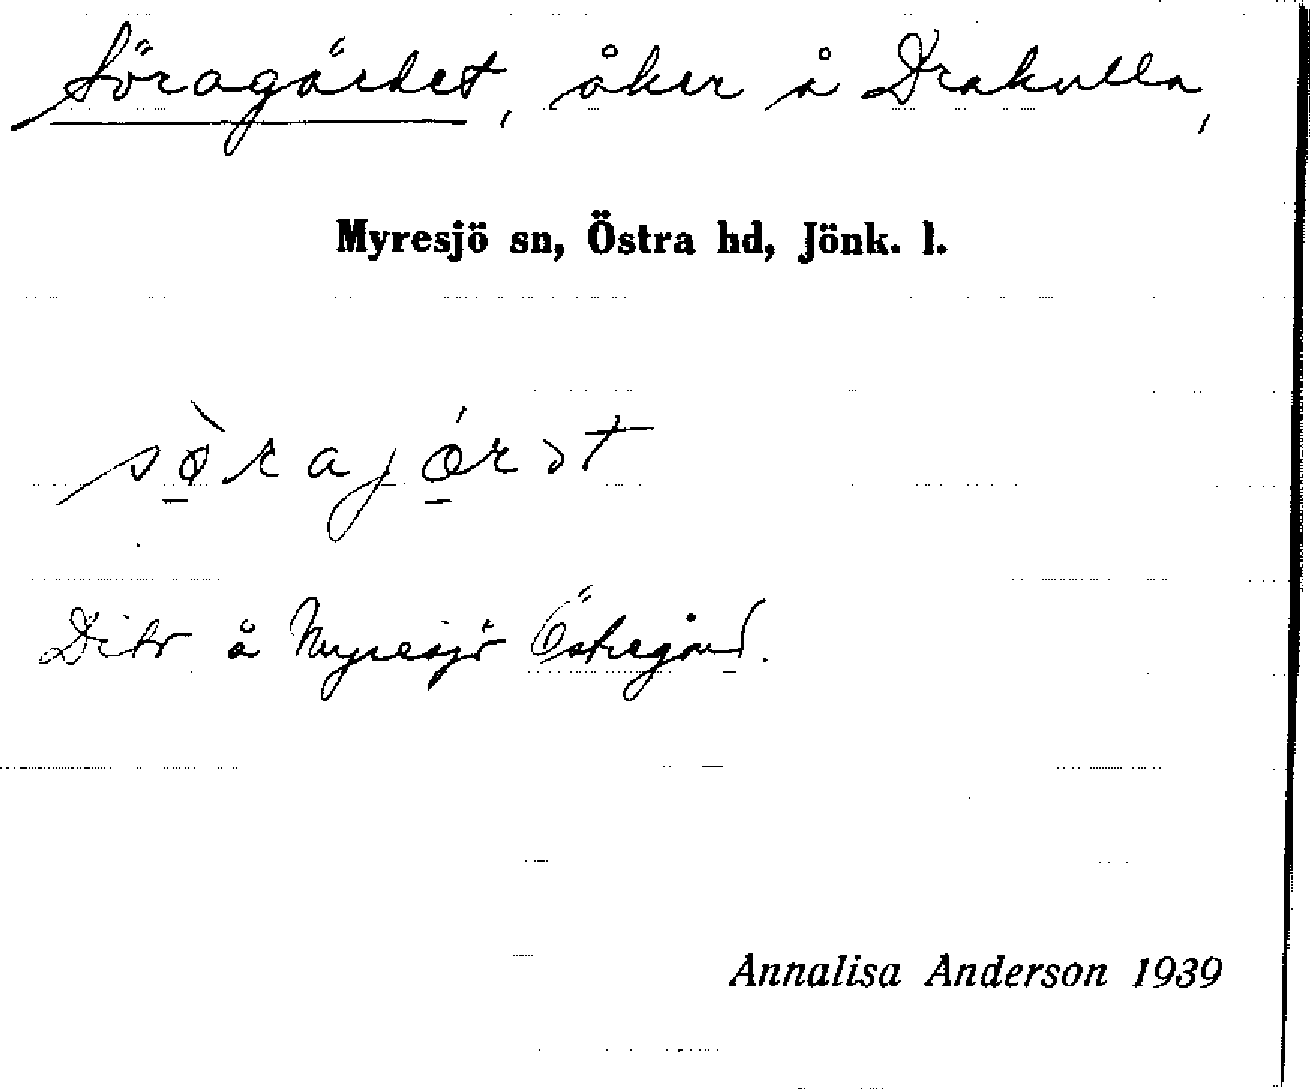 Söragärdet, åker å Drakulla,
Myresjö sn, Östra hd, Jönk. l.
sò̠rajó̠rət
Dito å Myresjö Östregård.
Annalisa Anderson 1939